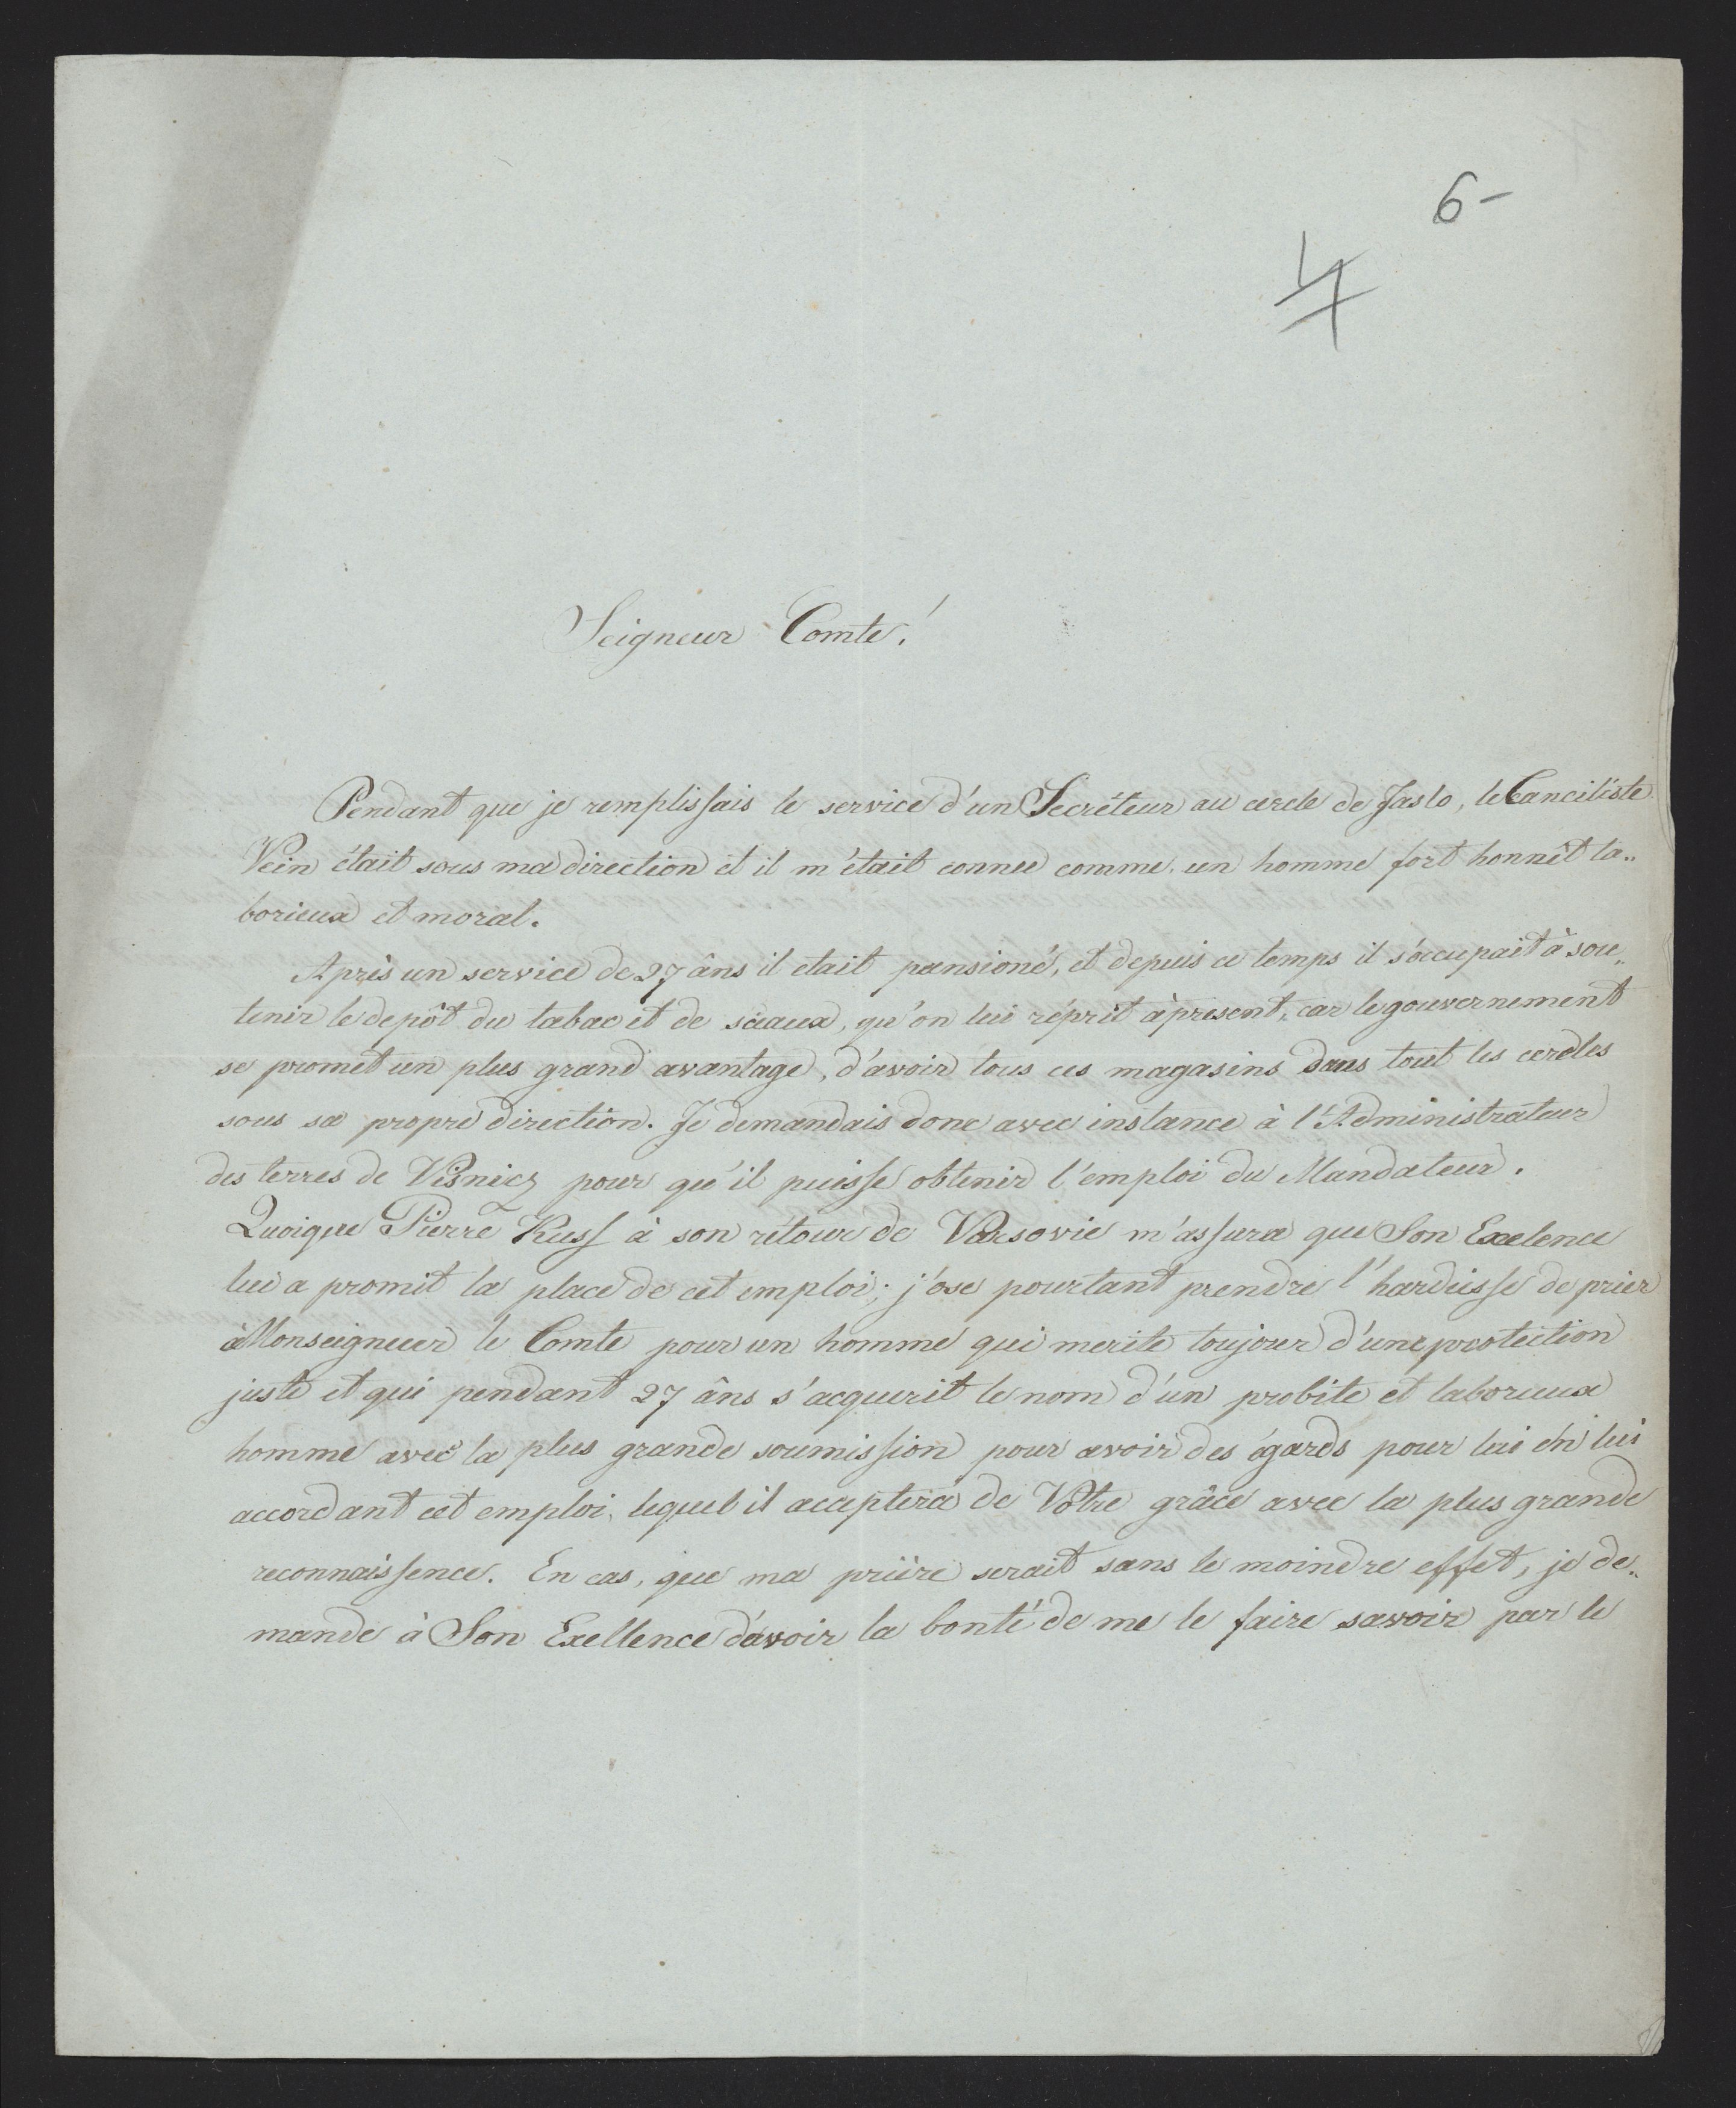 6-
Seigneur Comte!
Pendant que je remplissais le service d'un Secréteur au cercle de Jaslo, le Canciliste
Vein était sous ma direction et il m'était connu comme un homme fort honnêt la„
borieux et moral.
Après un service de 27 âns il etait pansioné, et depuis ce temps il s'occupait à sou„
tenir le depôt du tabac et de sceaux, qu'on lui réprit àpresent, car le gouvernement
se promet un plus grand avantage, d'avoir tous ces magasins dans tout les cercles
sous sa propre direction. Je demandais donc avec instance à l'Administrateur
des terres de Visnicz pour qu'il puisse obtenir l'emploi du Mandateur.
Quoique Pierre Kuss à son rétour de Varsovie m'assura que Son Exelence
lui a promit la place de cet emploi; j'ose pourtant prendre l'harduisse de prier
à Monseigneur le Comte pour un homme qui merite toujour d'une protection
juste et qui pendant 27 âns s'acquerit le nom d'un probite et laborieux
homme avec la plus grande soumission pour avoir des égards pour lui en lui
accordant cet emploi, lequel il acceptera de Votre grâce avec la plus grande
reconnaissence. En cas, que ma prière serait sans le moindre effet, je de„
mande à Son Exellence d'avoir la bonté de me le faire savoir par le